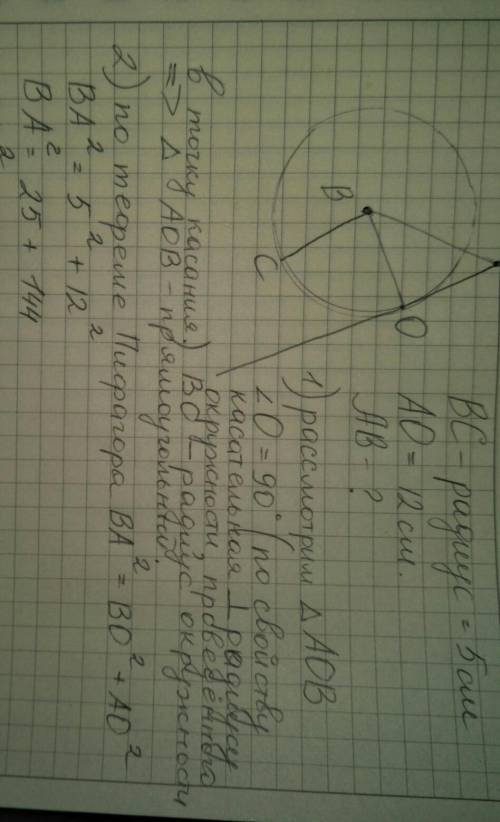 B
C
O
BC - радиус = 5 см
AO = 12 см.
AB - ?
1) рассмотрим △ AOB
∠O = 90° (по свойству
касательная ⊥ радиусу
окружности проведённый
в точку касания.) BO - радиус окружности
=> △ AOB - прямоугольный.
2) по теореме Пифагора BA² = BO² + AO²
BA² = 5² + 12²
BA² = 25 + 144
2